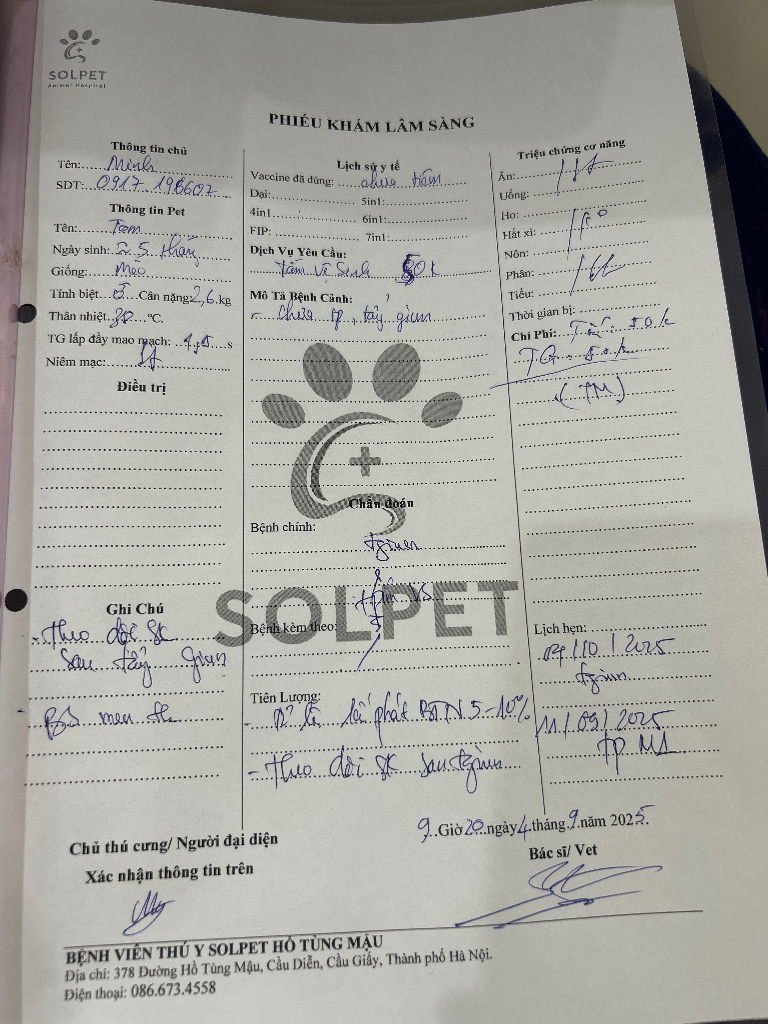 SOLPET
Animal Hospital
PHIẾU KHÁM LÂM SÀNG
Thông tin chủ
Tên: Minh
SDT: 0917 196607
Thông tin Pet
Tên: Tam
Ngày sinh: 2,5 tháng
Giống: Meo
Tính biệt Cân nặng 2,6 kg
Thân nhiệt °C.
TG lấp đầy mao mạch: 1,5 s
Niêm mạc:
Điều trị
Ghi Chú
- Theo dõi SK
sau tẩy giun
BS men
Lịch sử y tế
Vaccine đã dùng: chưa tiêm
Dại: 5in1:
4in1 6in1:
FIP: 7in1:
Dịch Vụ Yêu Cầu:
Tắm vệ sinh 50k
Mô Tả Bệnh Cảnh:
- chưa tp, tẩy giun
Chẩn đoán
Bệnh chính:
tgiun
&
tắm VS
SOLPET
Bệnh kèm theo:
Tiên Lượng:
phát BTN 5-10%
- Theo dõi SK sau tgiun
Triệu chứng cơ năng
Ăn:
Uống:
Ho:
Hắt xì:
Nôn:
Phân:
Tiểu:
Thời gian bị:
Chi Phí: 50k
TG: 50k
(TM)
Lịch hẹn:
/10/2025
tgiun
11/09/2025
tp M1
9 Giờ 20 ngày 4 tháng 9 năm 2025.
Chủ thú cưng/ Người đại diện
Xác nhận thông tin trên
Bác sĩ/ Vet
BỆNH VIỆN THÚ Y SOLPET HỒ TÙNG MẬU
Địa chỉ: 378 Đường Hồ Tùng Mậu, Cầu Diễn, Cầu Giấy, Thành phố Hà Nội.
Điện thoại: 086.673.4558